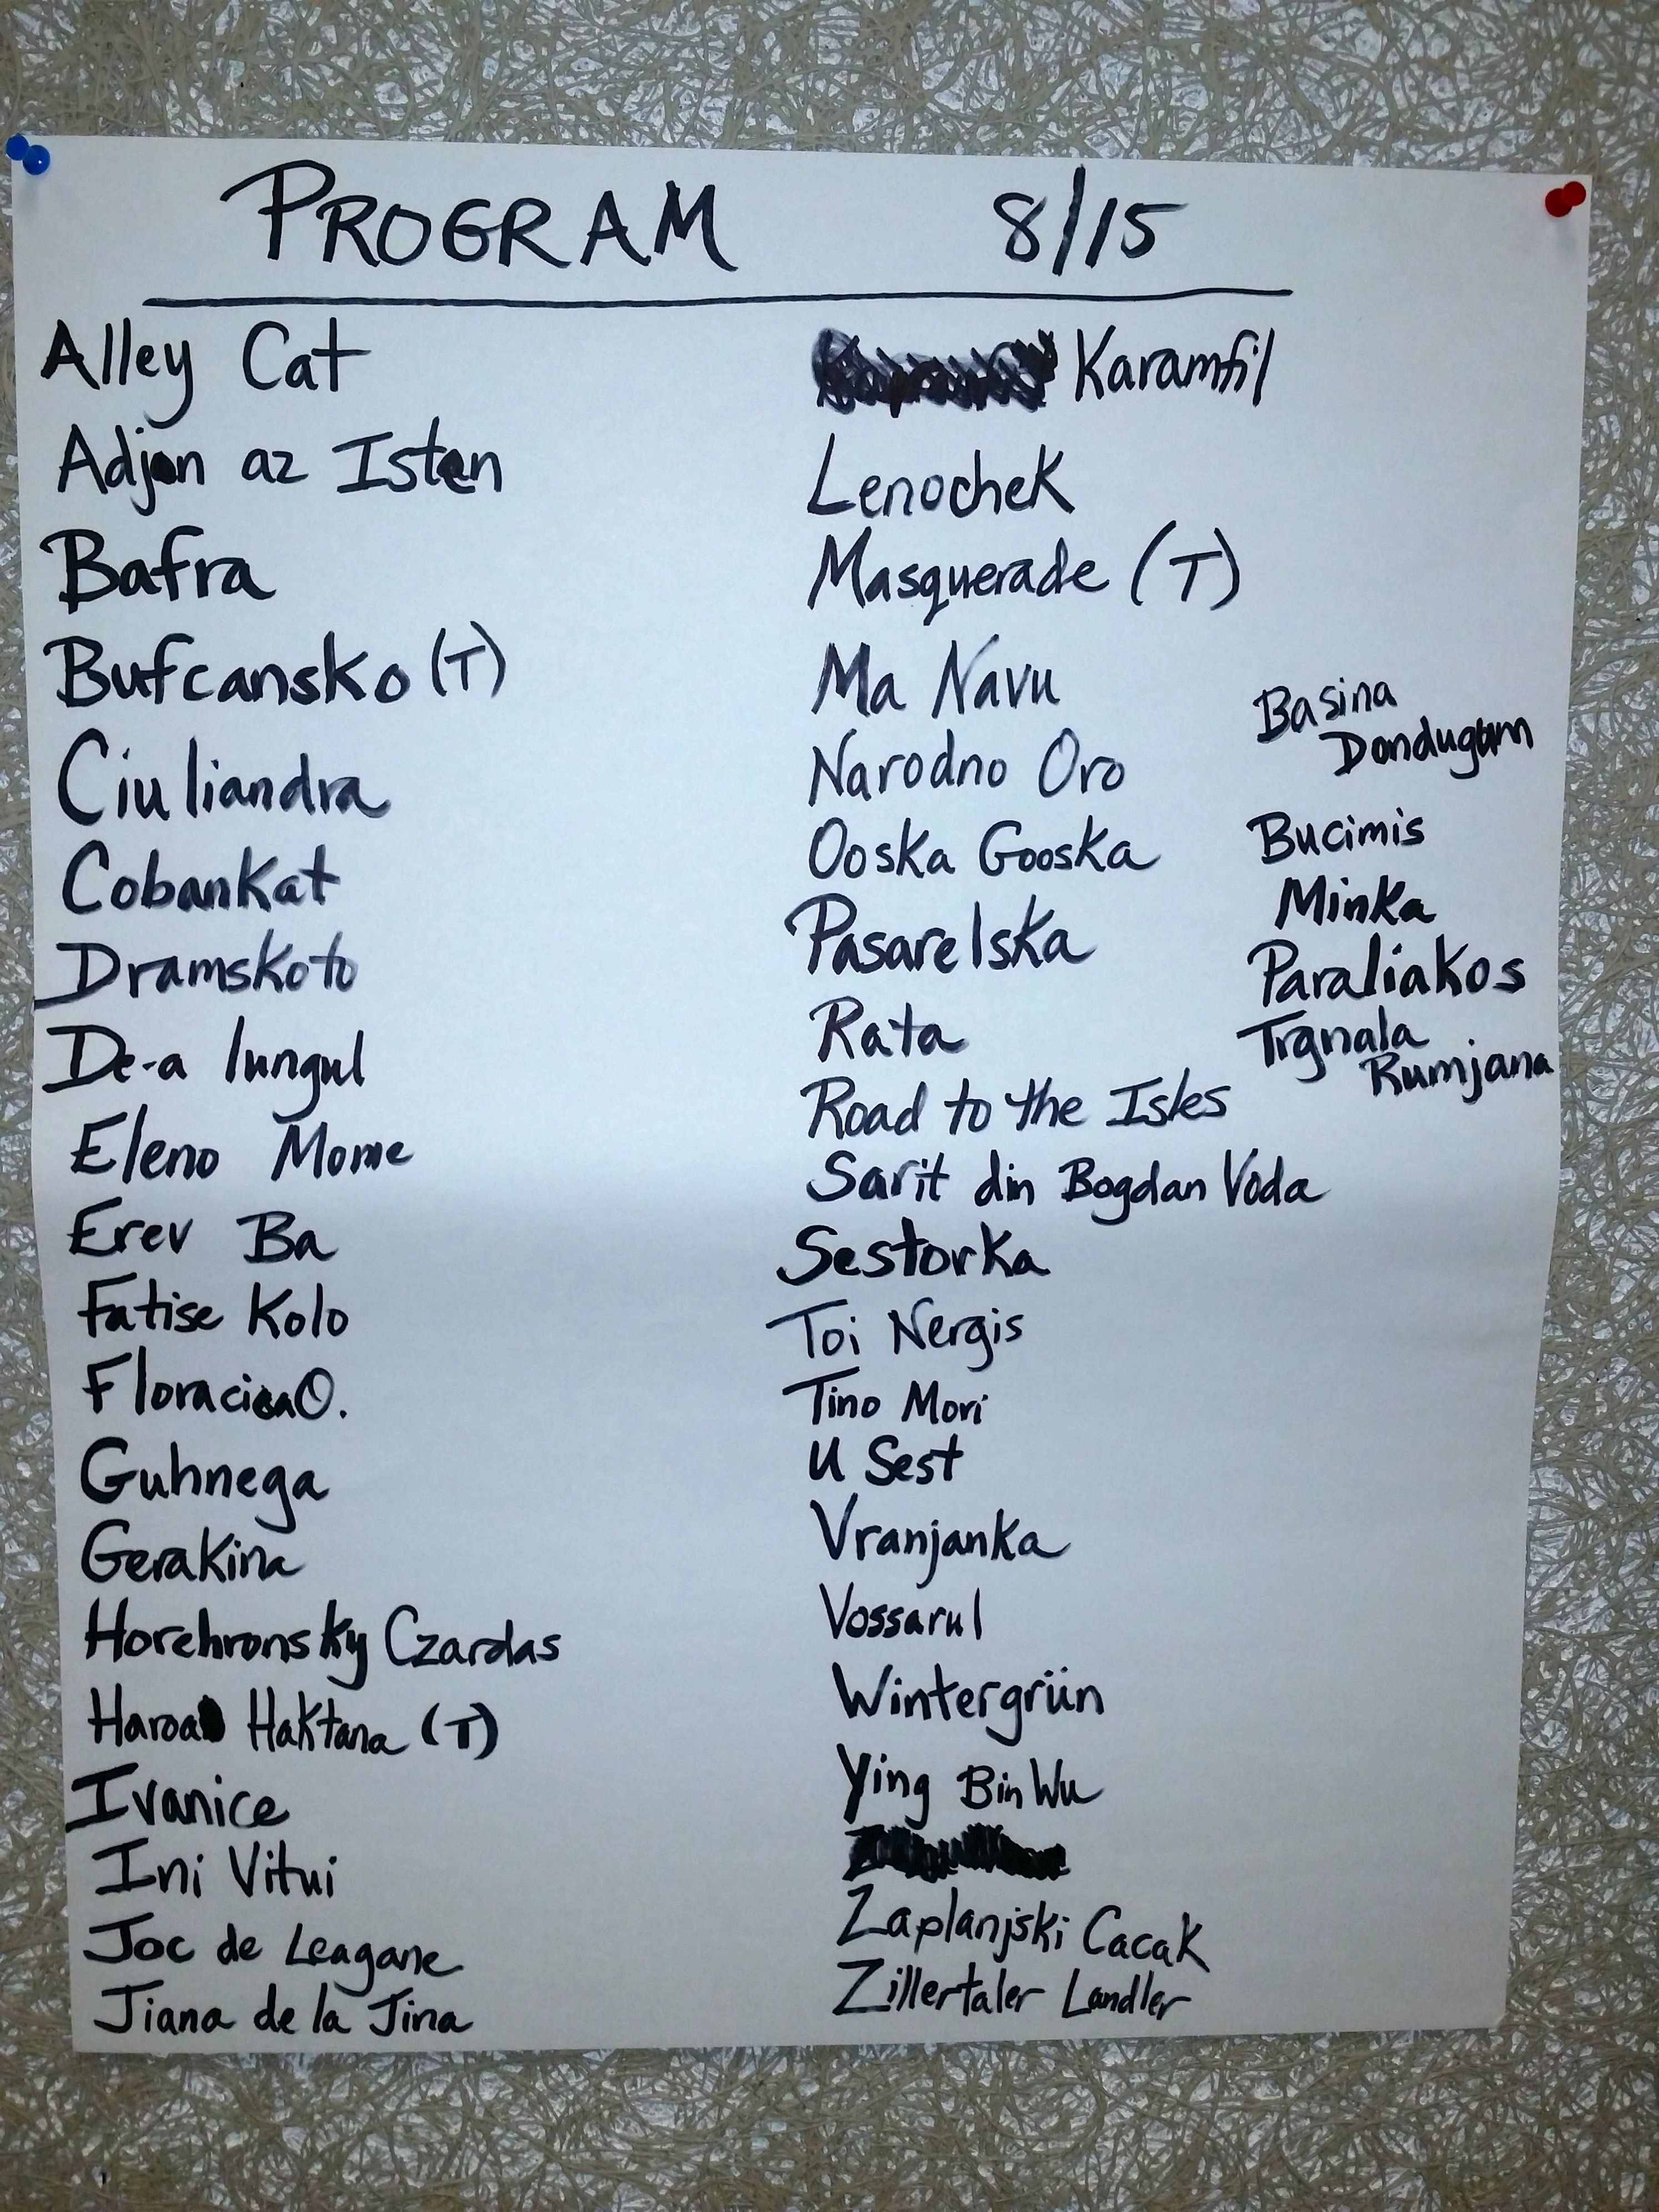 PROGRAM 8/15
Alley Cat
Adjon az Isten
Bafra
Bufcansko (T)
Ciuliandra
Cobankat
Dramskoto
De-a lungul
Eleno Mome
Erev Ba
Fatise Kolo
Floracica O.
Guhnega
Gerakina
Horehronsky Czardas
Haroa Haktana (T)
Ivanice
Ini Vitui
Joc de Leagane
Jiana de la Jina
Karamfil
Lenochek
Masquerade (T)
Ma Navu
Narodno Oro
Ooska Gooska
Pasarelska
Rata
Road to the Isles
Sarit din Bogdan Voda
Sestorka
Toi Nergis
Tino Mori
U Sest
Vranjanka
Vossarul
Wintergrün
Ying Bin Wu
Zaplanjski Cacak
Zillertaler Landler
Basina
Dondugam
Bucimis
Minka
Paraliakos
Trgnala
Rumjana